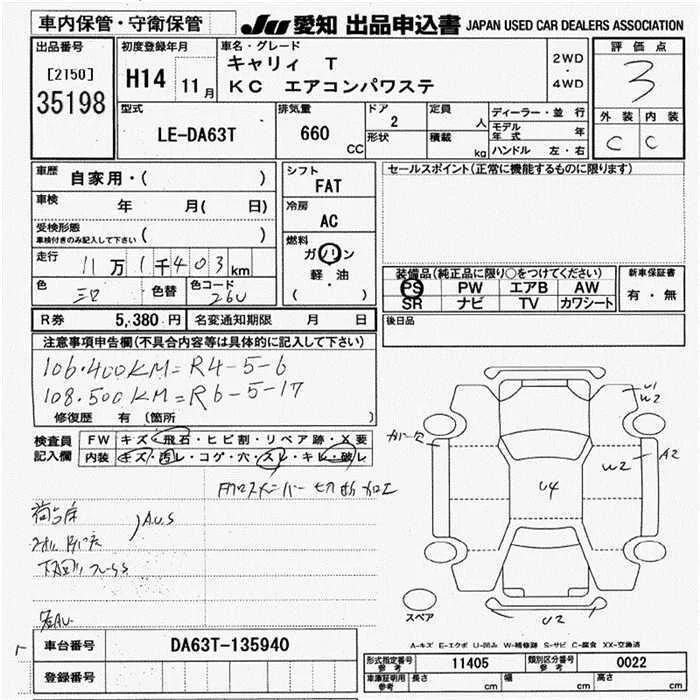 車内保管・守衛保管
JU 愛知 出品申込書 JAPAN USED CAR DEALERS ASSOCIATION
出品番号
[2150]
35198
初度登録年月
H14 11月
車名・グレード
キャリィ T
KC エアコンパワステ
2WD
・
4WD
評価点
3
外装 内装
C C
型式
LE-DA63T
排気量
660 CC
ドア
2
形状
定員
人
積載
kg
ディーラー・並行
モデル年式 年
ハンドル 左・右
車歴
自家用・( )
車検
年 月( 日)
受検形態
車検付きのみ記入して下さい ( )
走行
11万1千403km
色 色替 色コード
26U
シフト
FAT
冷房
AC
燃料
ガソリン
軽・油
( )
セールスポイント(正常に機能するものに限ります)
装備品(純正品に限り○をつけてください)
PS PW エアB AW
SR ナビ TV カワシート
新車保証書
有・無
後日品
R券 5,380円 名変通知期限 月 日
注意事項申告欄(不具合内容等は具体的に記入して下さい)
106.400KM=R4-5-6
108.500KM=R6-5-17
修復歴 有 (箇所 )
検査員
記入欄
FW キズ・飛石・ヒビ割・リペア跡・X要
内装 キズ・汚レ・コゲ・穴・スレ・キレ・破レ
A.U.S
W1
W2
A2
W2
U4
U2
スペア
A-キズ E-エクボ U-凹み W-補修跡 S-サビ C-腐食 XX-交換済
車台番号 DA63T-135940
登録番号
形式指定番号 参考 11405 類別区分番号 参考 0022
車庫証明用 参考 長さ cm 幅 cm 高さ cm